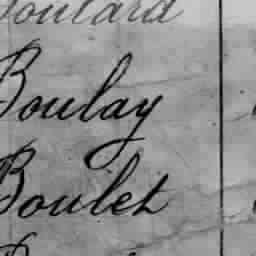 Boulard
Boulay
Boulet